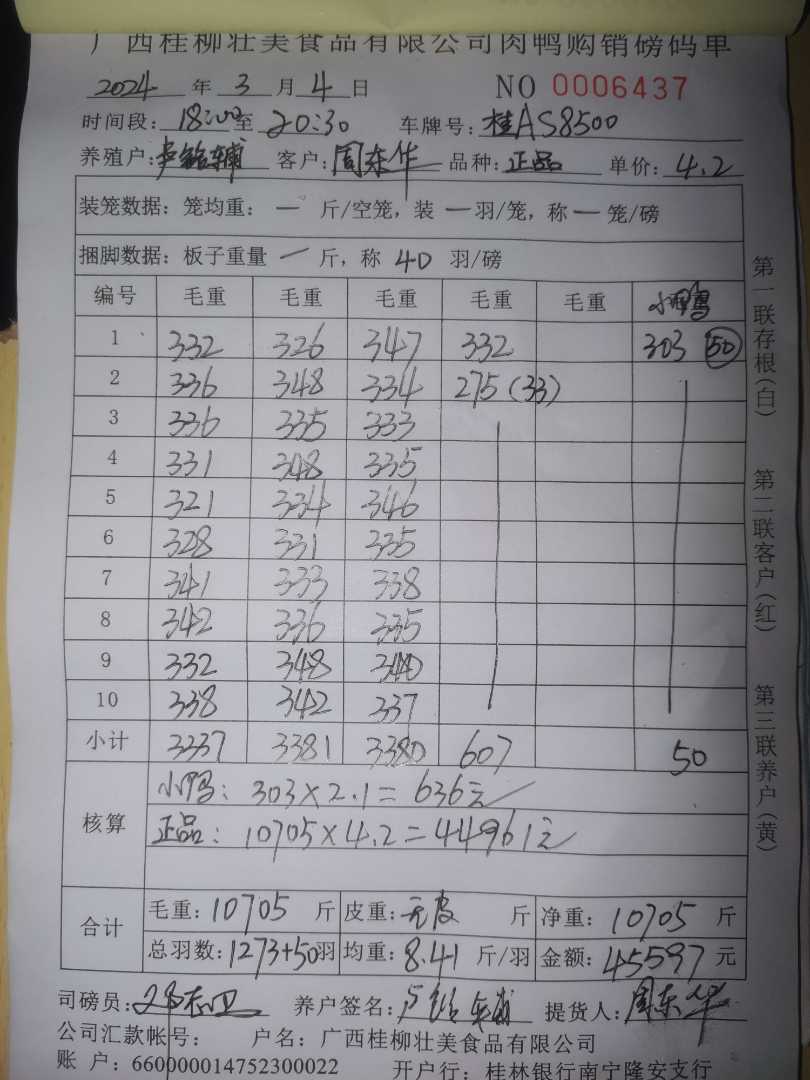 广西桂柳壮美食品有限公司肉鸭购销磅码单
2024 年 3 月 4 日 NO 0006437
时间段: 18:00 至 20:30 车牌号: 桂AS8500
养殖户: 卢铭辅 客户: 周东华 品种: 正品 单价: 4.2
装笼数据: 笼均重: 一 斤/空笼, 装 一 羽/笼, 称 一 笼/磅
捆脚数据: 板子重量 一 斤, 称 40 羽/磅
编号 毛重 毛重 毛重 毛重 毛重 小鸭
1 332 326 347 332 303 (50)
2 336 348 334 275 (33)
3 336 335 333
4 331 348 335
5 321 334 346
6 328 331 335
7 341 333 338
8 342 336 335
9 332 348 340
10 338 342 337
小计 3337 3381 3380 607 50
核算
小鸭: 303×2.1=636元
正品: 10705×4.2=44961元
合计 毛重: 10705 斤 皮重: 无皮 斤 净重: 10705 斤
总羽数: 1273+50羽 均重: 8.41 斤/羽 金额: 45597 元
司磅员: 养户签名: 卢铭辅 提货人: 周东华
公司汇款帐号: 户名: 广西桂柳壮美食品有限公司
账 户: 660000014752300022 开户行: 桂林银行南宁隆安支行
第一联存根(白)
第二联客户(红)
第三联养户(黄)